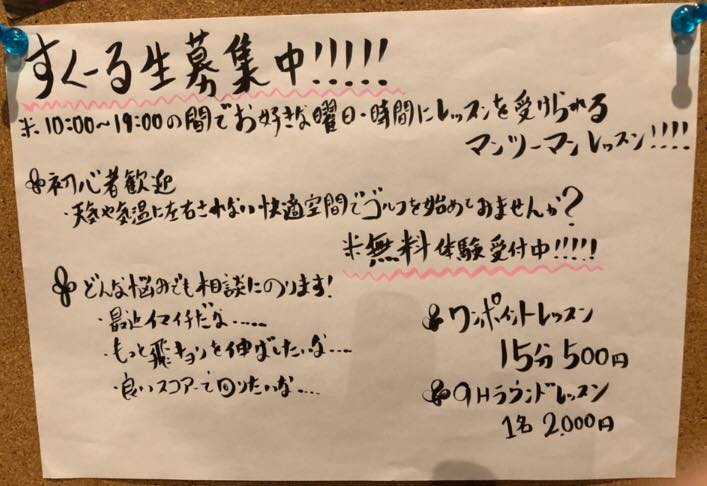 すくーる生募集中!!!!!
※10:00〜19:00の間でお好きな曜日・時間にレッスンを受けられる
マンツーマンレッスン!!!!
初心者歓迎
・天気や気温に左右されない快適空間でゴルフを始めてみませんか?
※無料体験受付中!!!!!
どんな悩みでも相談にのります!
・最近イマイチだな……
・もっと飛キョリを伸ばしたいな……
・良いスコアーで回りたいな……
ワンポイントレッスン
15分500円
9Hラウンドレッスン
1名 2,000円